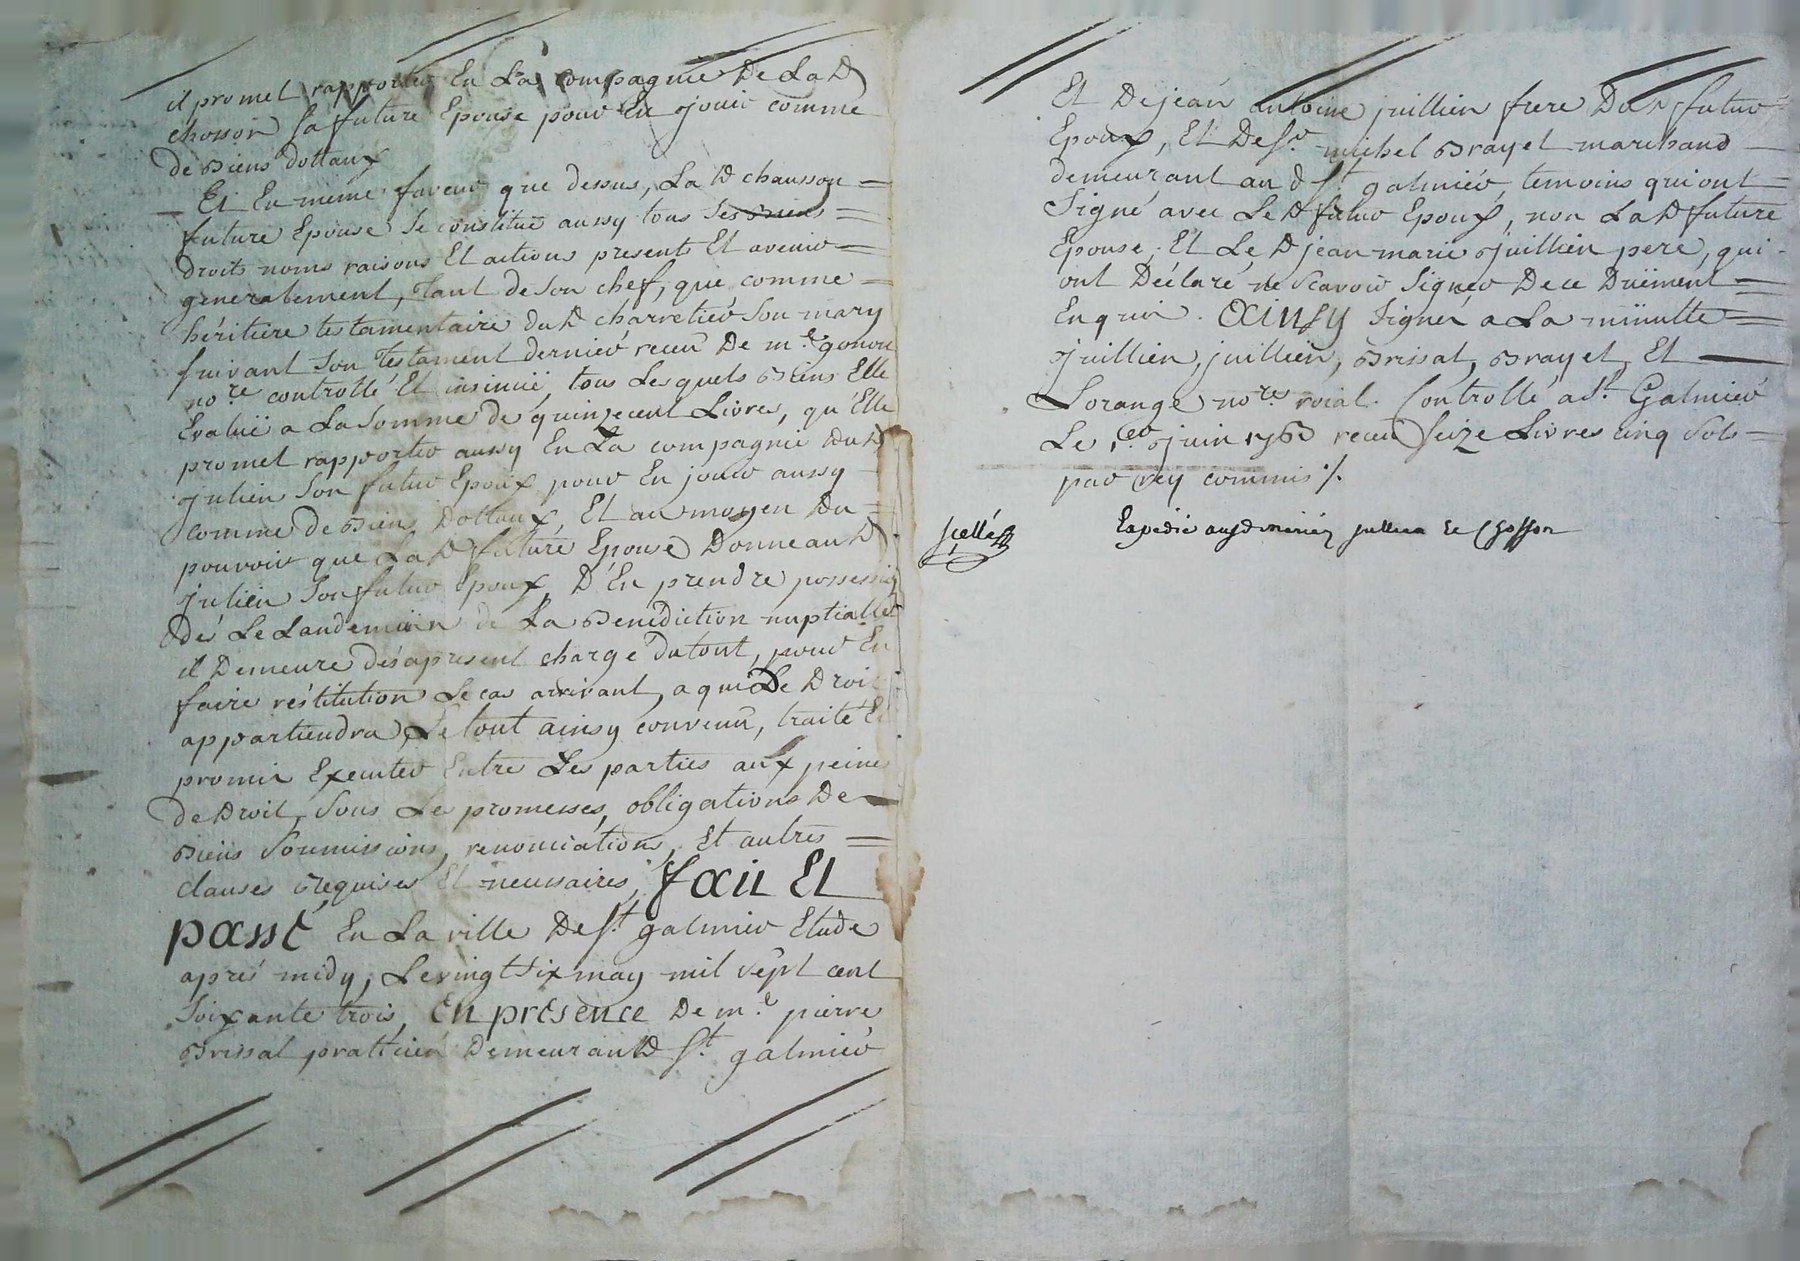 il promet rapporter En La compagnie De La D
chosson sa future Epouse pour En jouir comme
de Biens dottaux
Et En même faveur que dessus, La D chausson
future Epouse se constitue aussy tous ses Biens
droits noms raisons Et actions presents Et avenir
generalement, tant de son chef, que comme
héritière testamentaire du D charretier son mary
suivant son testament dernier receu De m.e gonon
no.re controllé Et insinué, tous Lesquels Biens Elle
Evalüe a La somme de quinze cent Livres, qu'Elle
promet rapporter aussy En La compagnie du D
julien son futur Epoux pour En jouir aussy
comme de Biens Dottaux, Et au moyen Du
pouvoir que La D future Epouse Donne au D
julien son futur Epoux, D'En prendre possession
dès Le Landemain de La Benediction nuptialle
il Demeure dès apresent chargé du tout, pour En
faire réstitution Le cas arrivant, a qui Le Droit
appartiendra, Le tout ainsy convenu, traité Et
promis Executer Entre Les parties aux peines
de Droit, sous Les promesses, obligations De
Biens soumissions, renonciations, Et autres
clauses requises Et necessaires, fait Et
passé En La ville De s.t galmier Etude
aprés midy, Le vingt six may mil sept cent
soixante trois, En présence De m.e pierre
Brissat pratticien Demeurant D s.t galmier
Et De jean antoine juillien frere Du D futur
Epoux, Et De s.r michel Brayet marchand
demeurant au D s.t galmier, temoins qui ont
signé avec Le D futur Epoux, non La D future
Epouse, Et Le D jean marie juillien pere, qui
ont Déclaré ne scavoir signer De ce Düement
Enquis. Ainsy signés a La minutte
juillien, juillien, Brissat, Brayet, Et
Lorange no.re roïal. Controllé a s.t Galmier
Le 1.er juin 1763 receu seize Livres cinq sols
par rey commis ./.
scellé Expedié auxd mariés jullien et Chosson